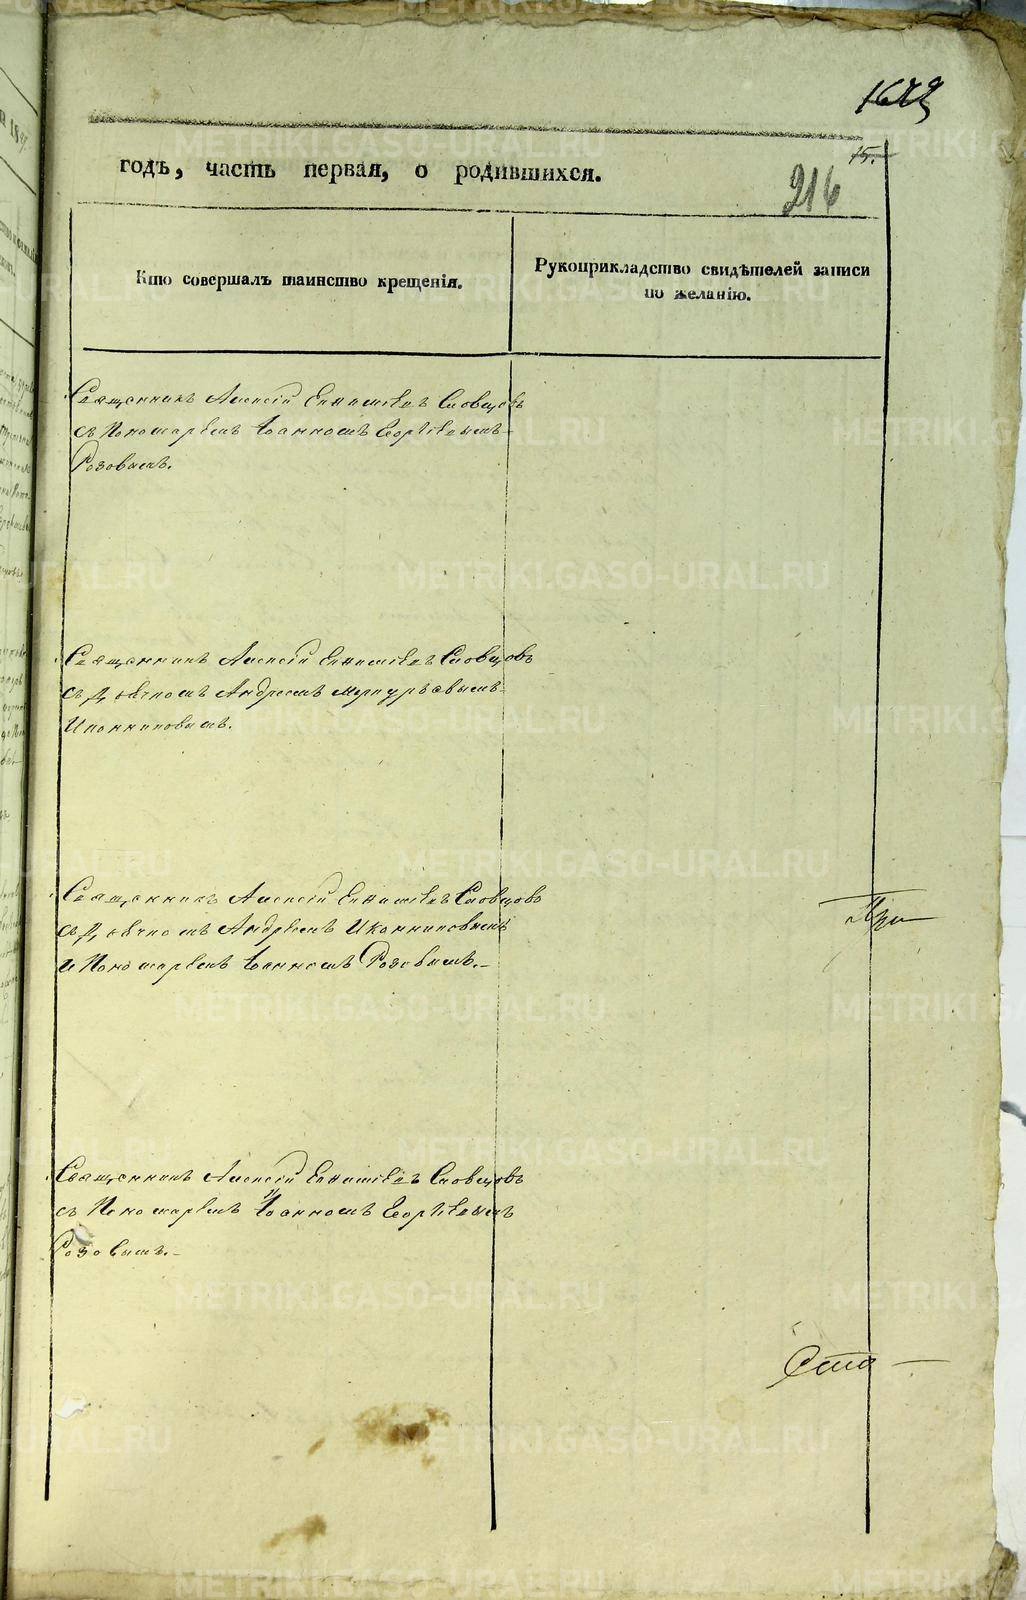 15.
216
годъ, часть первая, о родившихся.
Кто совершалъ таинство крещенія.
Рукоприкладство свидѣтелей записи
по желанію.
Священникъ Алексій Словцовъ
съ Пономаремъ Іоанномъ Георгіевымъ
Розовымъ.
Священникъ Алексій Словцовъ
съ Дьячкомъ Андреемъ Меркурьевымъ
Иконниковымъ.
Священникъ Алексій Словцовъ
съ Дьячкомъ Андреемъ Иконниковымъ
и Пономаремъ Іоанномъ Розовымъ.
При
Священникъ Алексій Словцовъ
съ Пономаремъ Іоанномъ Георгіевымъ
Розовымъ.
METRIKI.GASO-URAL.RU